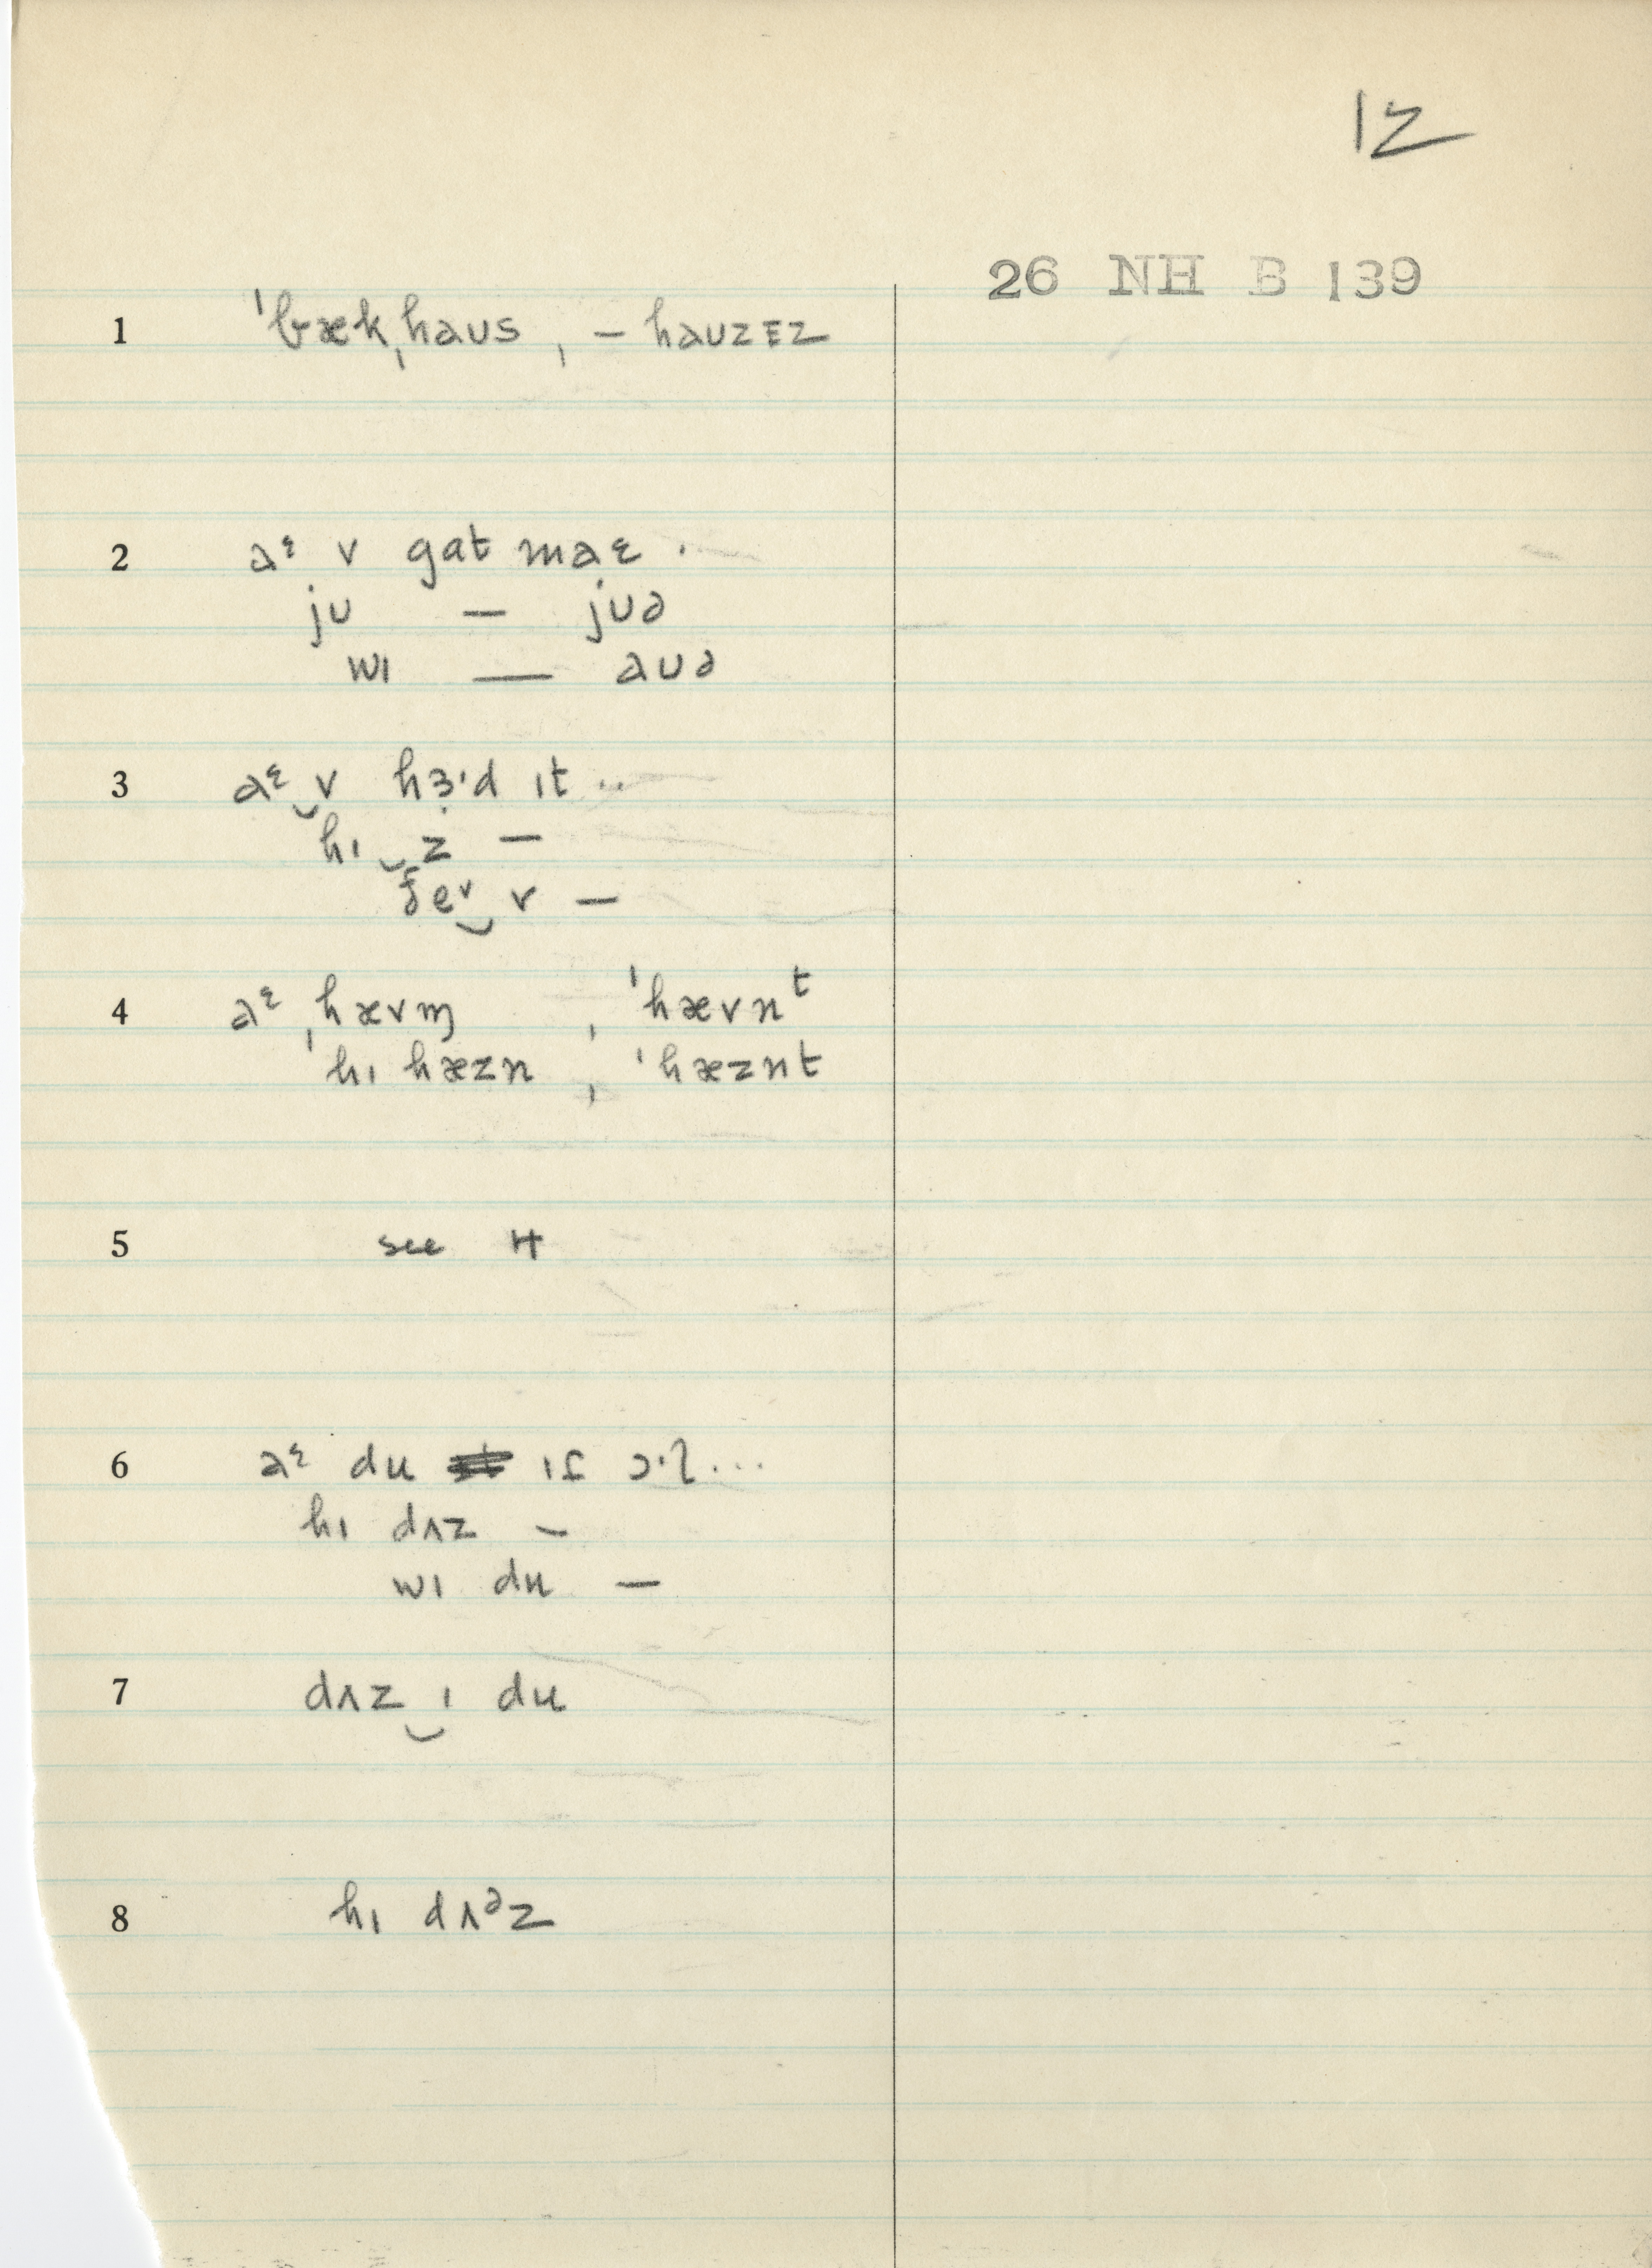 12
26 NH B 139
1 ˈbækˌhaʊs, – haʊzɪz
2 aᵋ v gɑt maɛ.
jʊ — jʊə
wɪ — aʊə
3 aᵋ‿v hɜ·d ɪt ..
hɪ‿z —
ðeᶦ‿v —
4 aᵋ ˌhævm̩, ˈhævnᵗ
ˈhɪ hæzn, ˈhæznt
5 see 4
6 aᵋ du ɪf ɔ·l...
hɪ dʌz —
wɪ du —
7 dʌz‿ɪ du
8 hɪ dʌᵊz